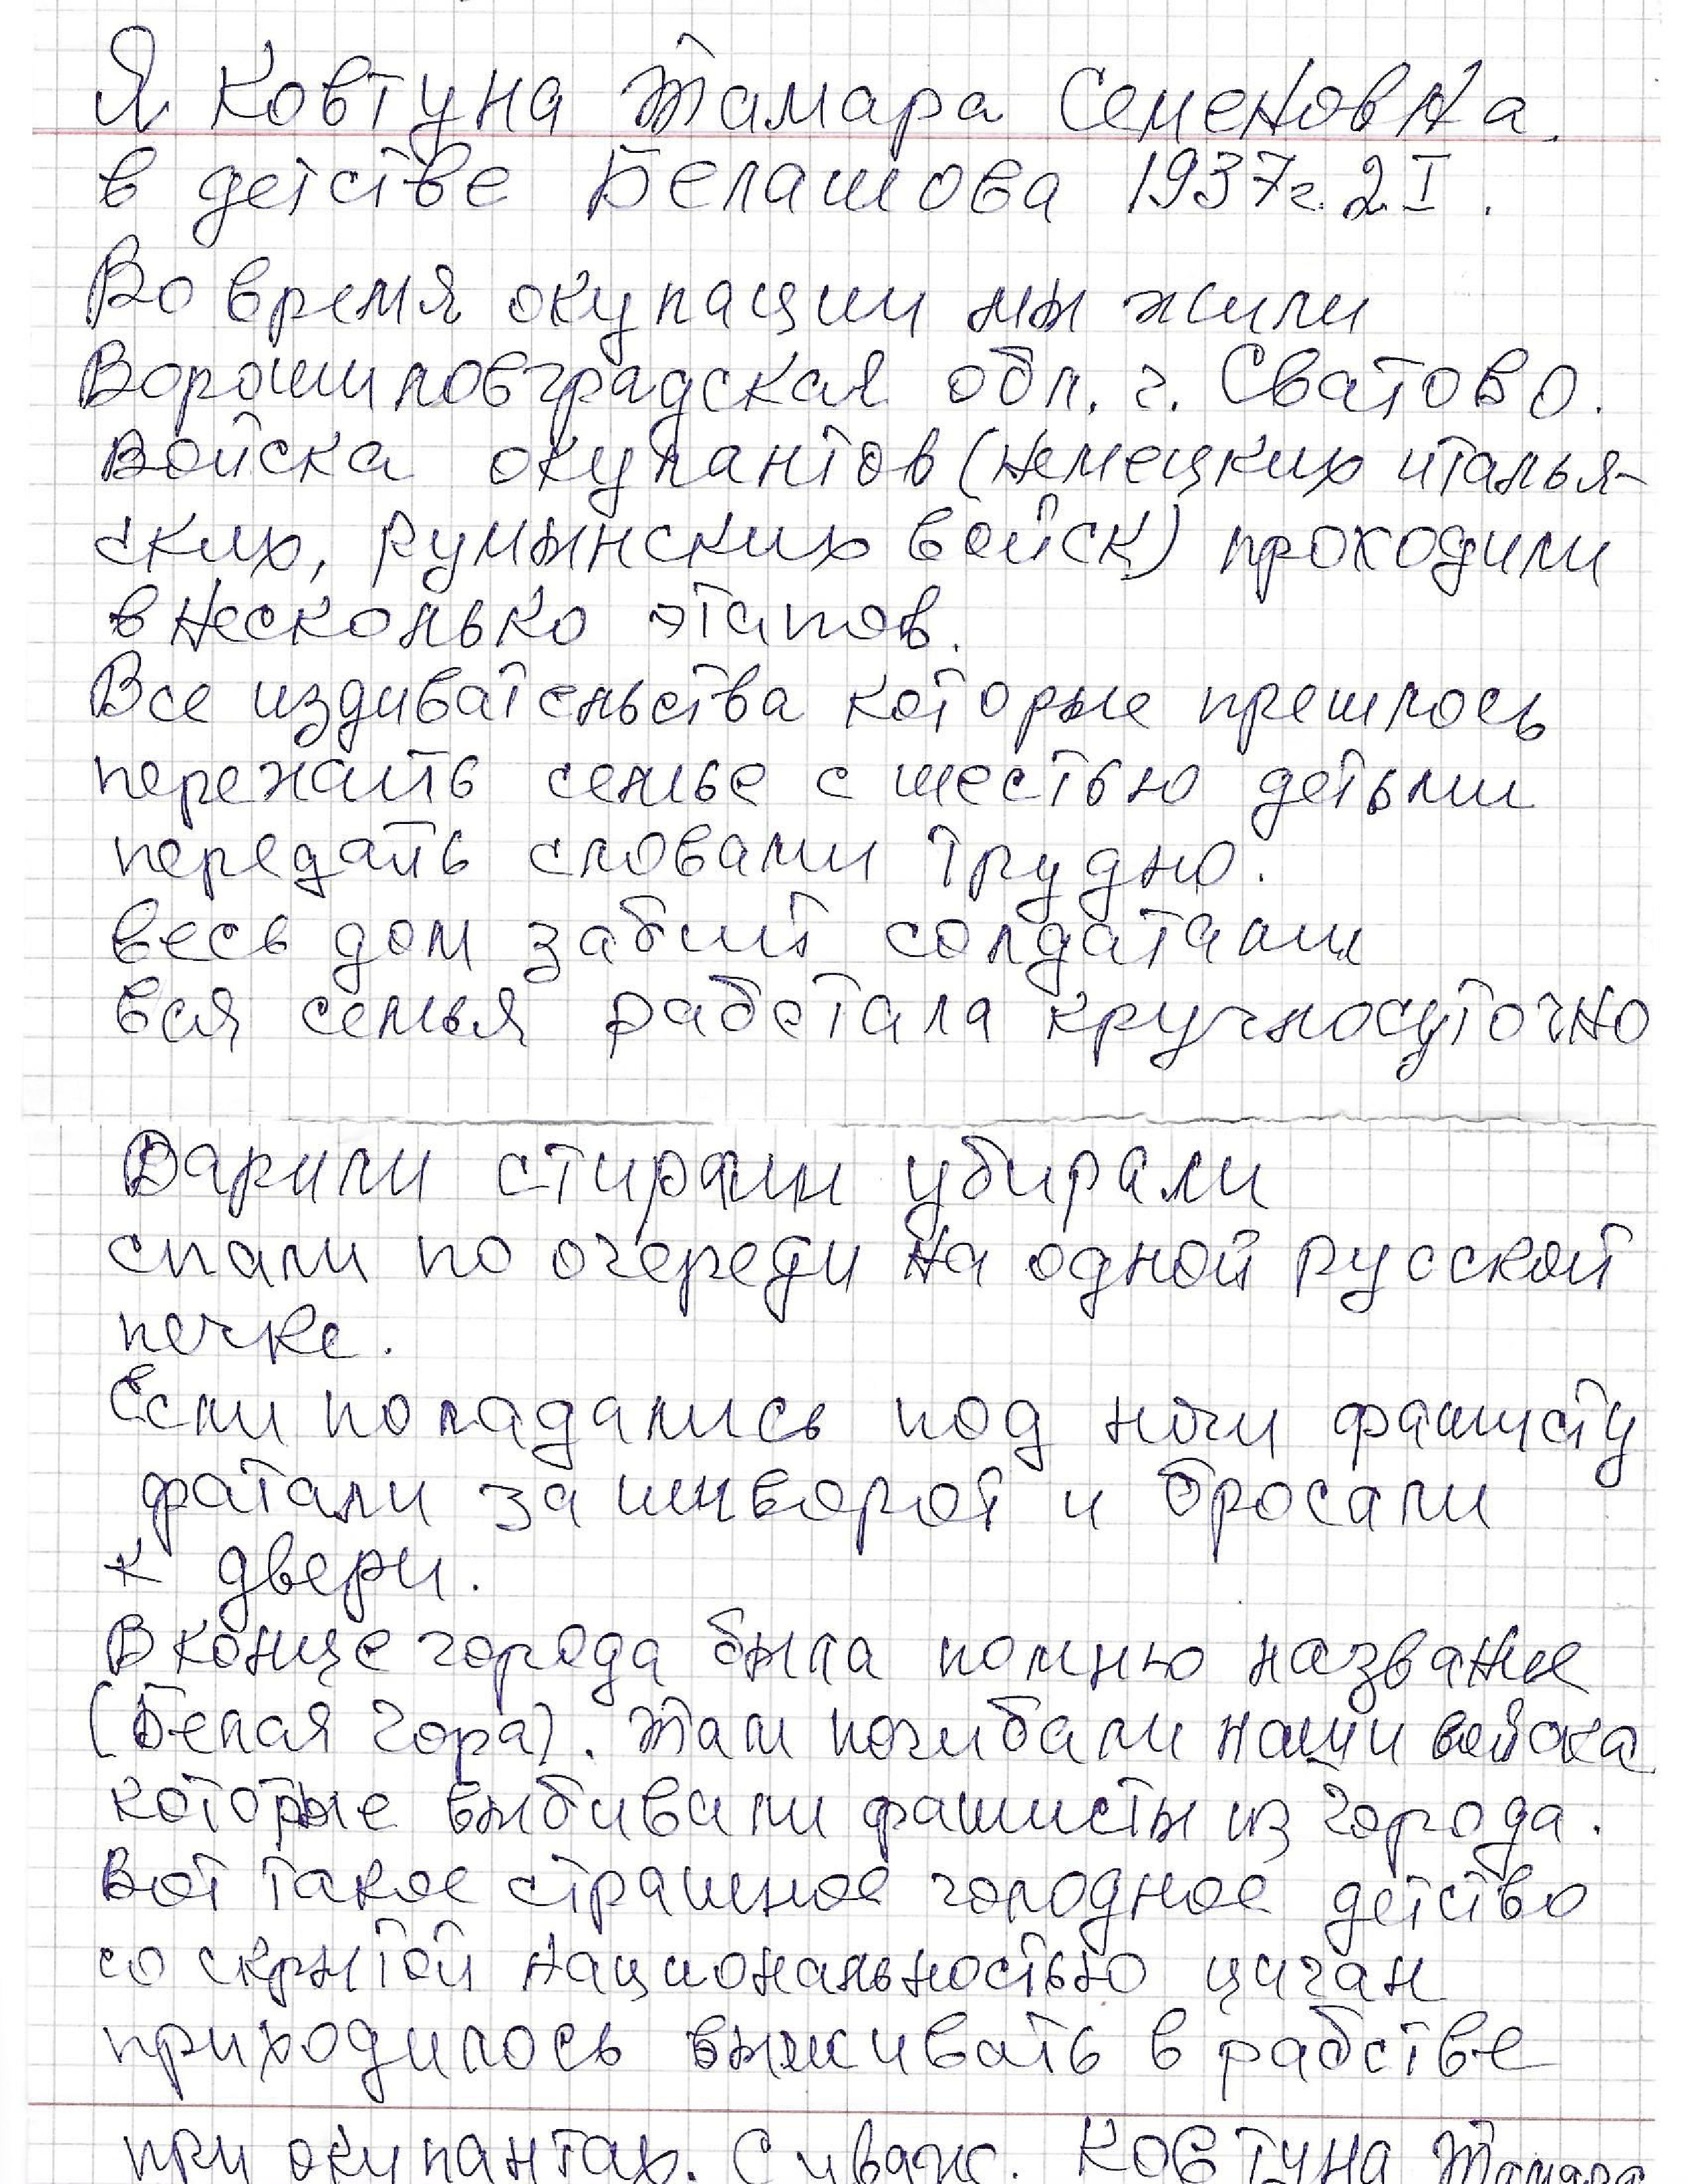 Я Ковтуна Тамара Семеновна.
в детстве Белашова 1937г. 2.I.
Во время окупации мы жили
Ворошиловградская обл. г. Сватово.
Войска окупантов (немецких италья-
ских, румынских войск) проходили
в несколько этапов.
Все издивательства которые прешлось
пережить семье с шестью детьми
передать словами трудно.
весь дом забит солдатами
вся семья работала кручносуточно
Варили стирали убирали
спали по очереди на одной русской
печке.
Если попадались под ноги фашисту
фатали за шиворот и бросали
к двери.
В конце города была помню название
(Белая гора). Там погибали наши войска
которые выбивали фашисты из города.
Вот такое страшное голодное детство
со скрытой национальностью циган
приходилось выживать в рабстве
при окупантах. С уваж. Ковтуна Тамара